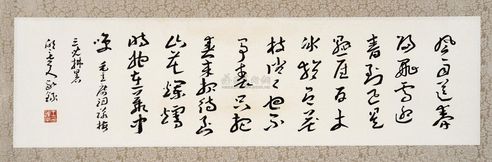 風雨送春
歸飛雪迎
春到已是
懸崖百丈
冰猶有花
枝俏俏也不
爭春只把
春來報待到
山花爛熳
時她在叢中
笑 毛主席詞詠梅
敬錄